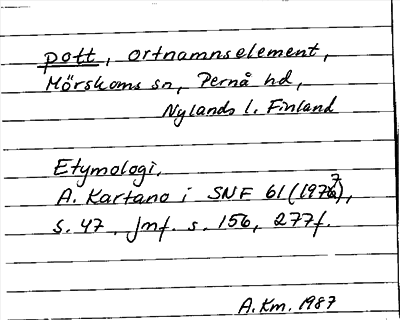 pott, ortnamnselement,
Mörskoms sn, Pernå hd,
Nylands l. Finland
Etymologi.
A. Kartano i SNF 61 (1977),
s. 47. Jmf. s. 156, 277f.
A.Km. 1987